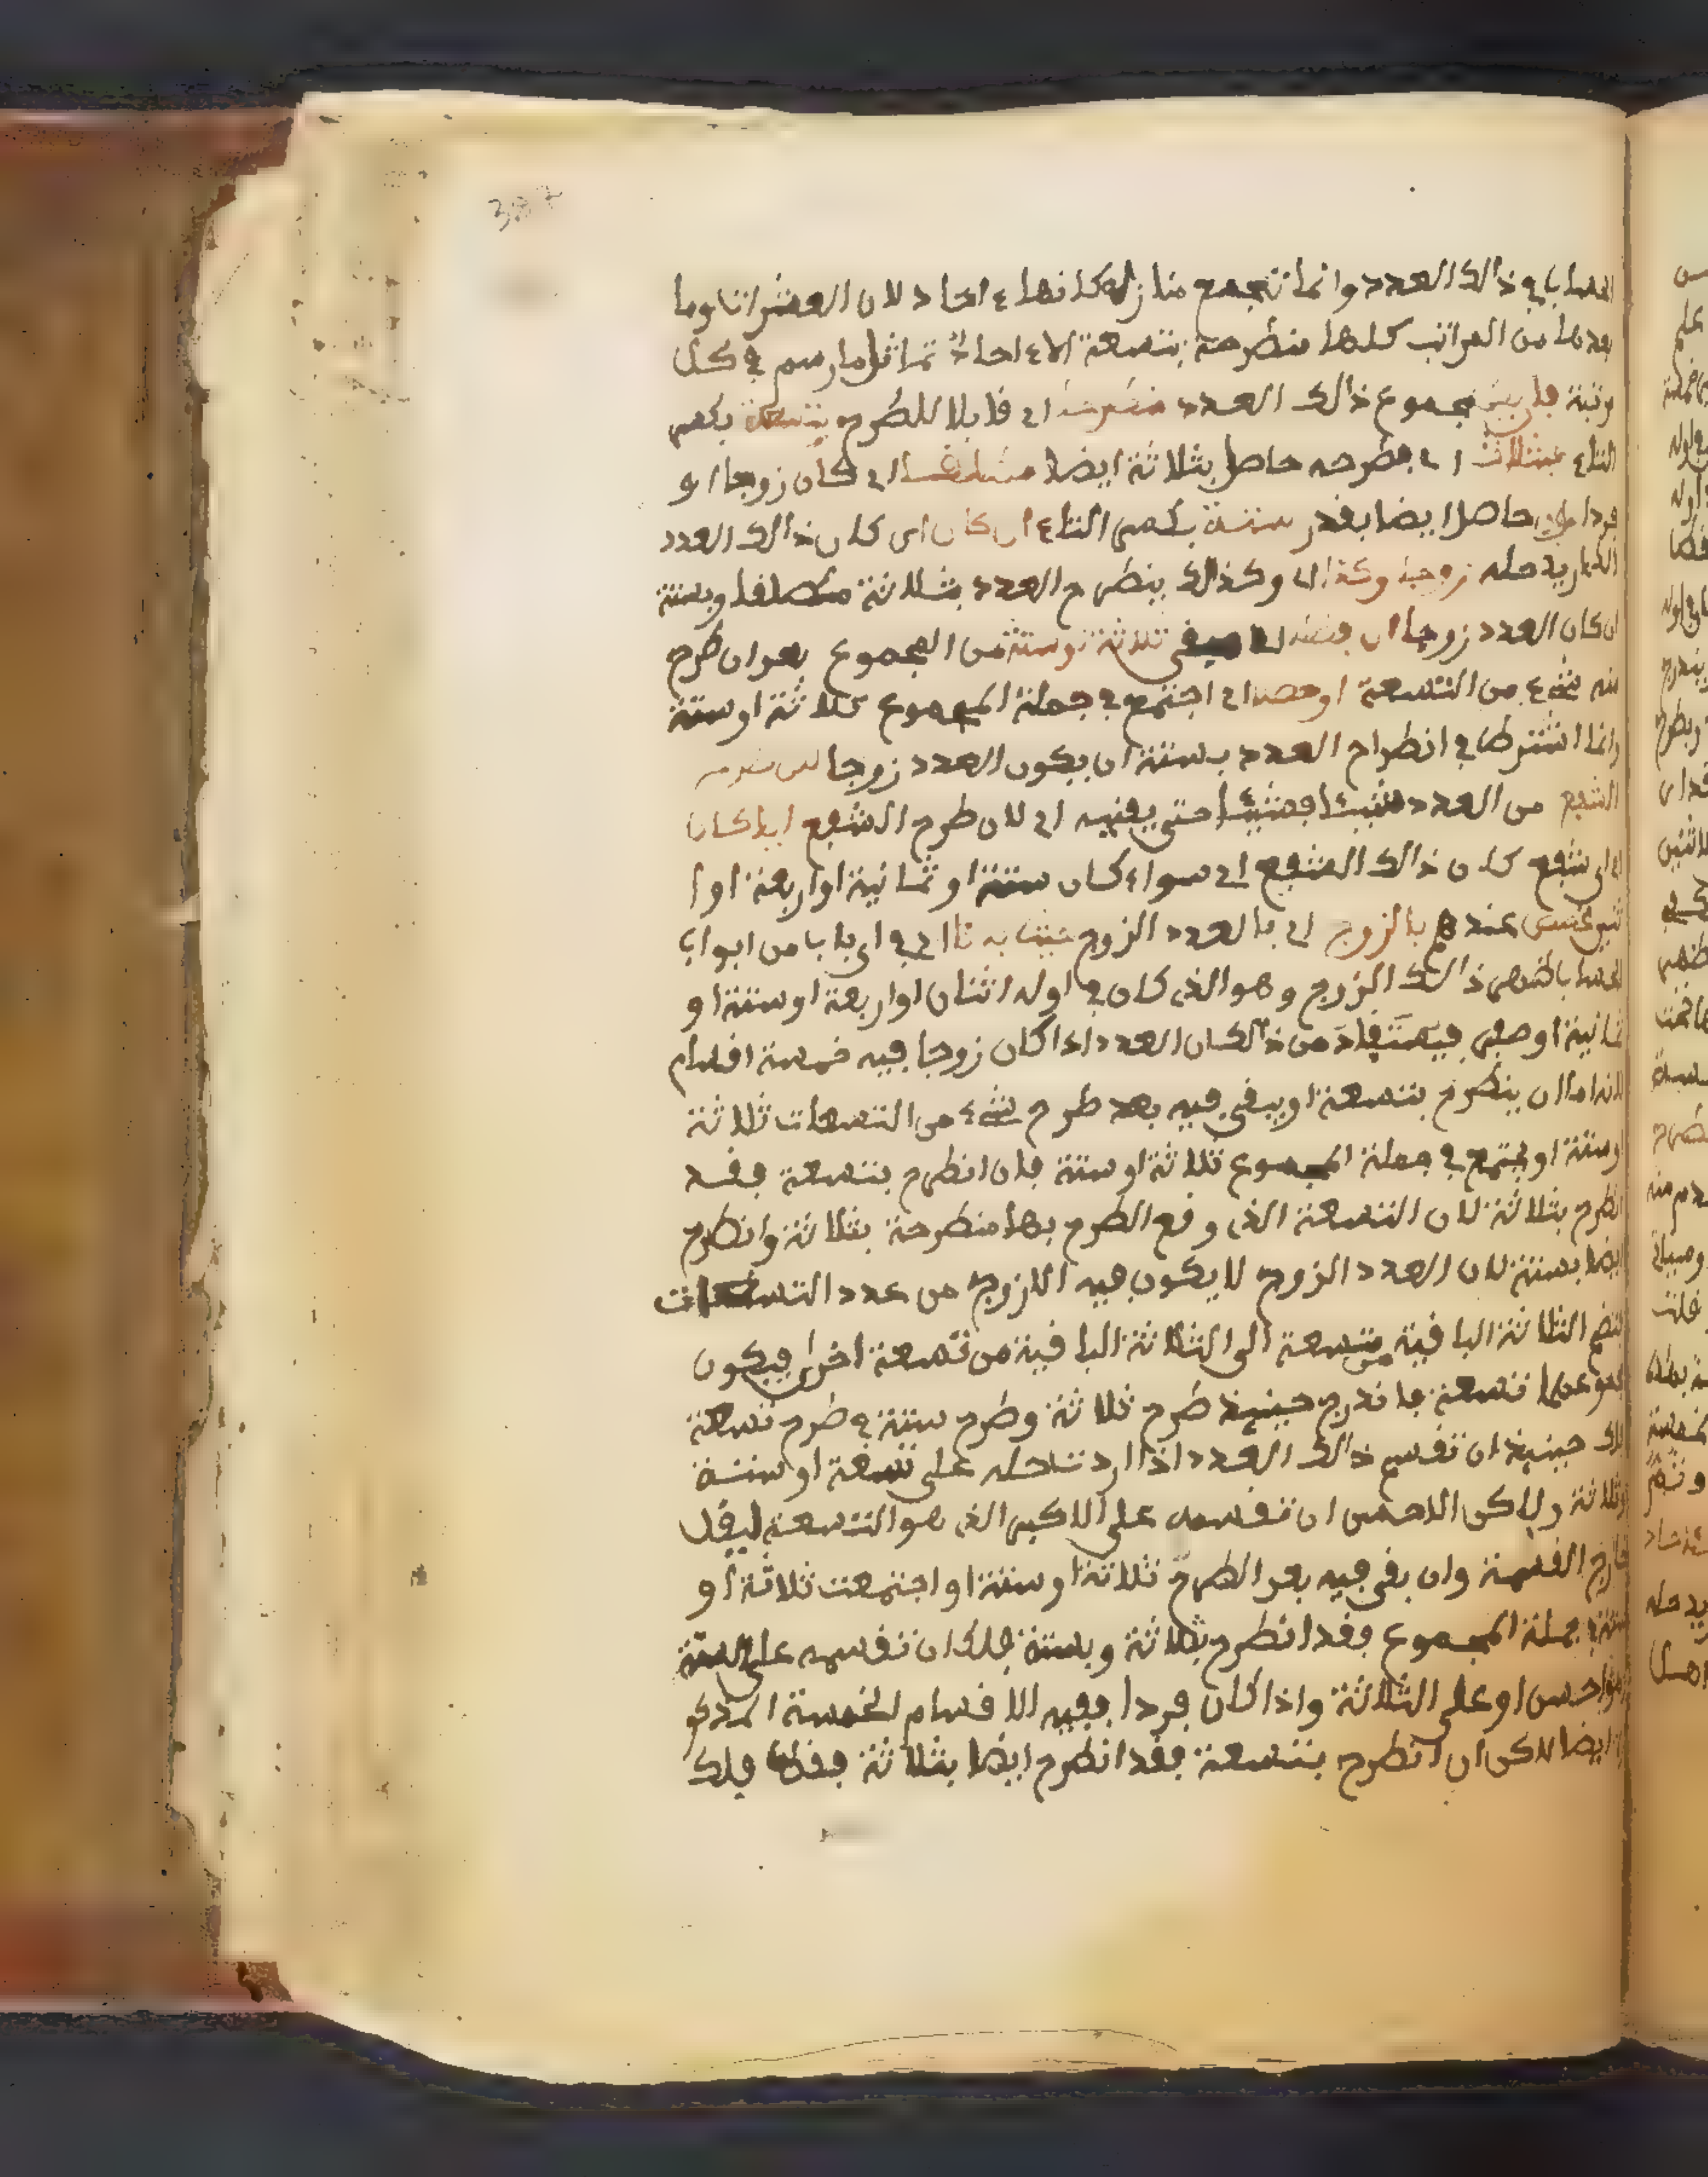 ذالك العدد وانما تجمع منازله كانها ءاحاد لان العشرات وما
بعدها من المراتب كلها منطرحة بتسعة الا ءاحاد تماثل ما رسم في كل
مجموع ذالك العدد اي قابلا للطرح بتسعة بكسر
التاء فبثلاث اي فطرحه حاصل بثلاثة ايضا اي كان زوجا او
فردا حاصل ايضا بقدر ستة بكسر التاء ان كان اي كان ذالك العدد
حله زوجا وكذا اي وكذالك ينطرح العدد بثلاثة مطلقا وبستة
ان كان العدد زوجا ان ثلاثة او ستة من المجموع بعد ان طرح
منه شيء من التسعة او اي اجتمع في جملة المجموع ثلاثة او ستة
وانما اشترطنا في انطراح العدد بستة ان يكون العدد زوجا
الشفع من العدد شيئا فشيئا حتى يفنيه اي لان طرح الشفع ايا كان
اي شفع كان ذالك الشفع اي سواء كان ستة او ثمانية او اربعة او ا
عندهم بالزوج اي بالعدد الزوج اي في اي باب من ابواب
ذالك الزوج وهو الذي كان في اوله اثنان او اربعة او ستة او
ثمانية او صفر فيستفاد من ذالك ان العدد اذا كان زوجا فيه خمسة اقسام
لانه اما ان ينطرح بتسعة او يبقى فيه بعد طرح شيء من التسعات ثلاثة
او ستة او يجتمع في جملة المجموع ثلاثة او ستة فان انطرح بتسعة فقد
انطرح بثلاثة لان التسعة الذي وقع الطرح بها منطرحة بثلاثة وانطرح
ايضا بستة لان العدد الزوج لا يكون فيه الا زوج من عدد التسعات
الثلاثة الباقية من تسعة الى الثلاثة الباقية من تسعة اخرى فيكون
مجموعهما تسعة فاندرج حينيذ طرح ثلاثة وطرح ستة في طرح تسعة
فلك حينيذ ان تقسم ذالك العدد اذا اردت حله على تسعة او ستة
او ثلاثة ولاكن الاحسن ان تقسمه على الاكبر الذي هو التسعة ليقل
خارج القسمة وان بقي فيه بعد الطرح ثلاثة او ستة او اجتمعت ثلاثة او
ستة في جملة المجموع فقد انطرح بثلاثة وبستة فلك ان تقسمه على الستة
وهو احسن او على الثلاثة واذا كان فردا ففيه الاقسام الخمسة المذكو
رة ايضا لاكن ان انطرح بتسعة فقد انطرح ايضا بثلاثة فقط فلك